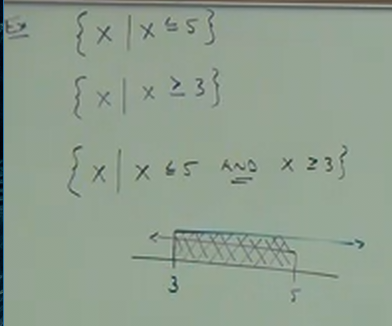 Ex {x | x ≤ 5}
{x | x ≥ 3}
{x | x ≤ 5 AND x ≥ 3}
3 5